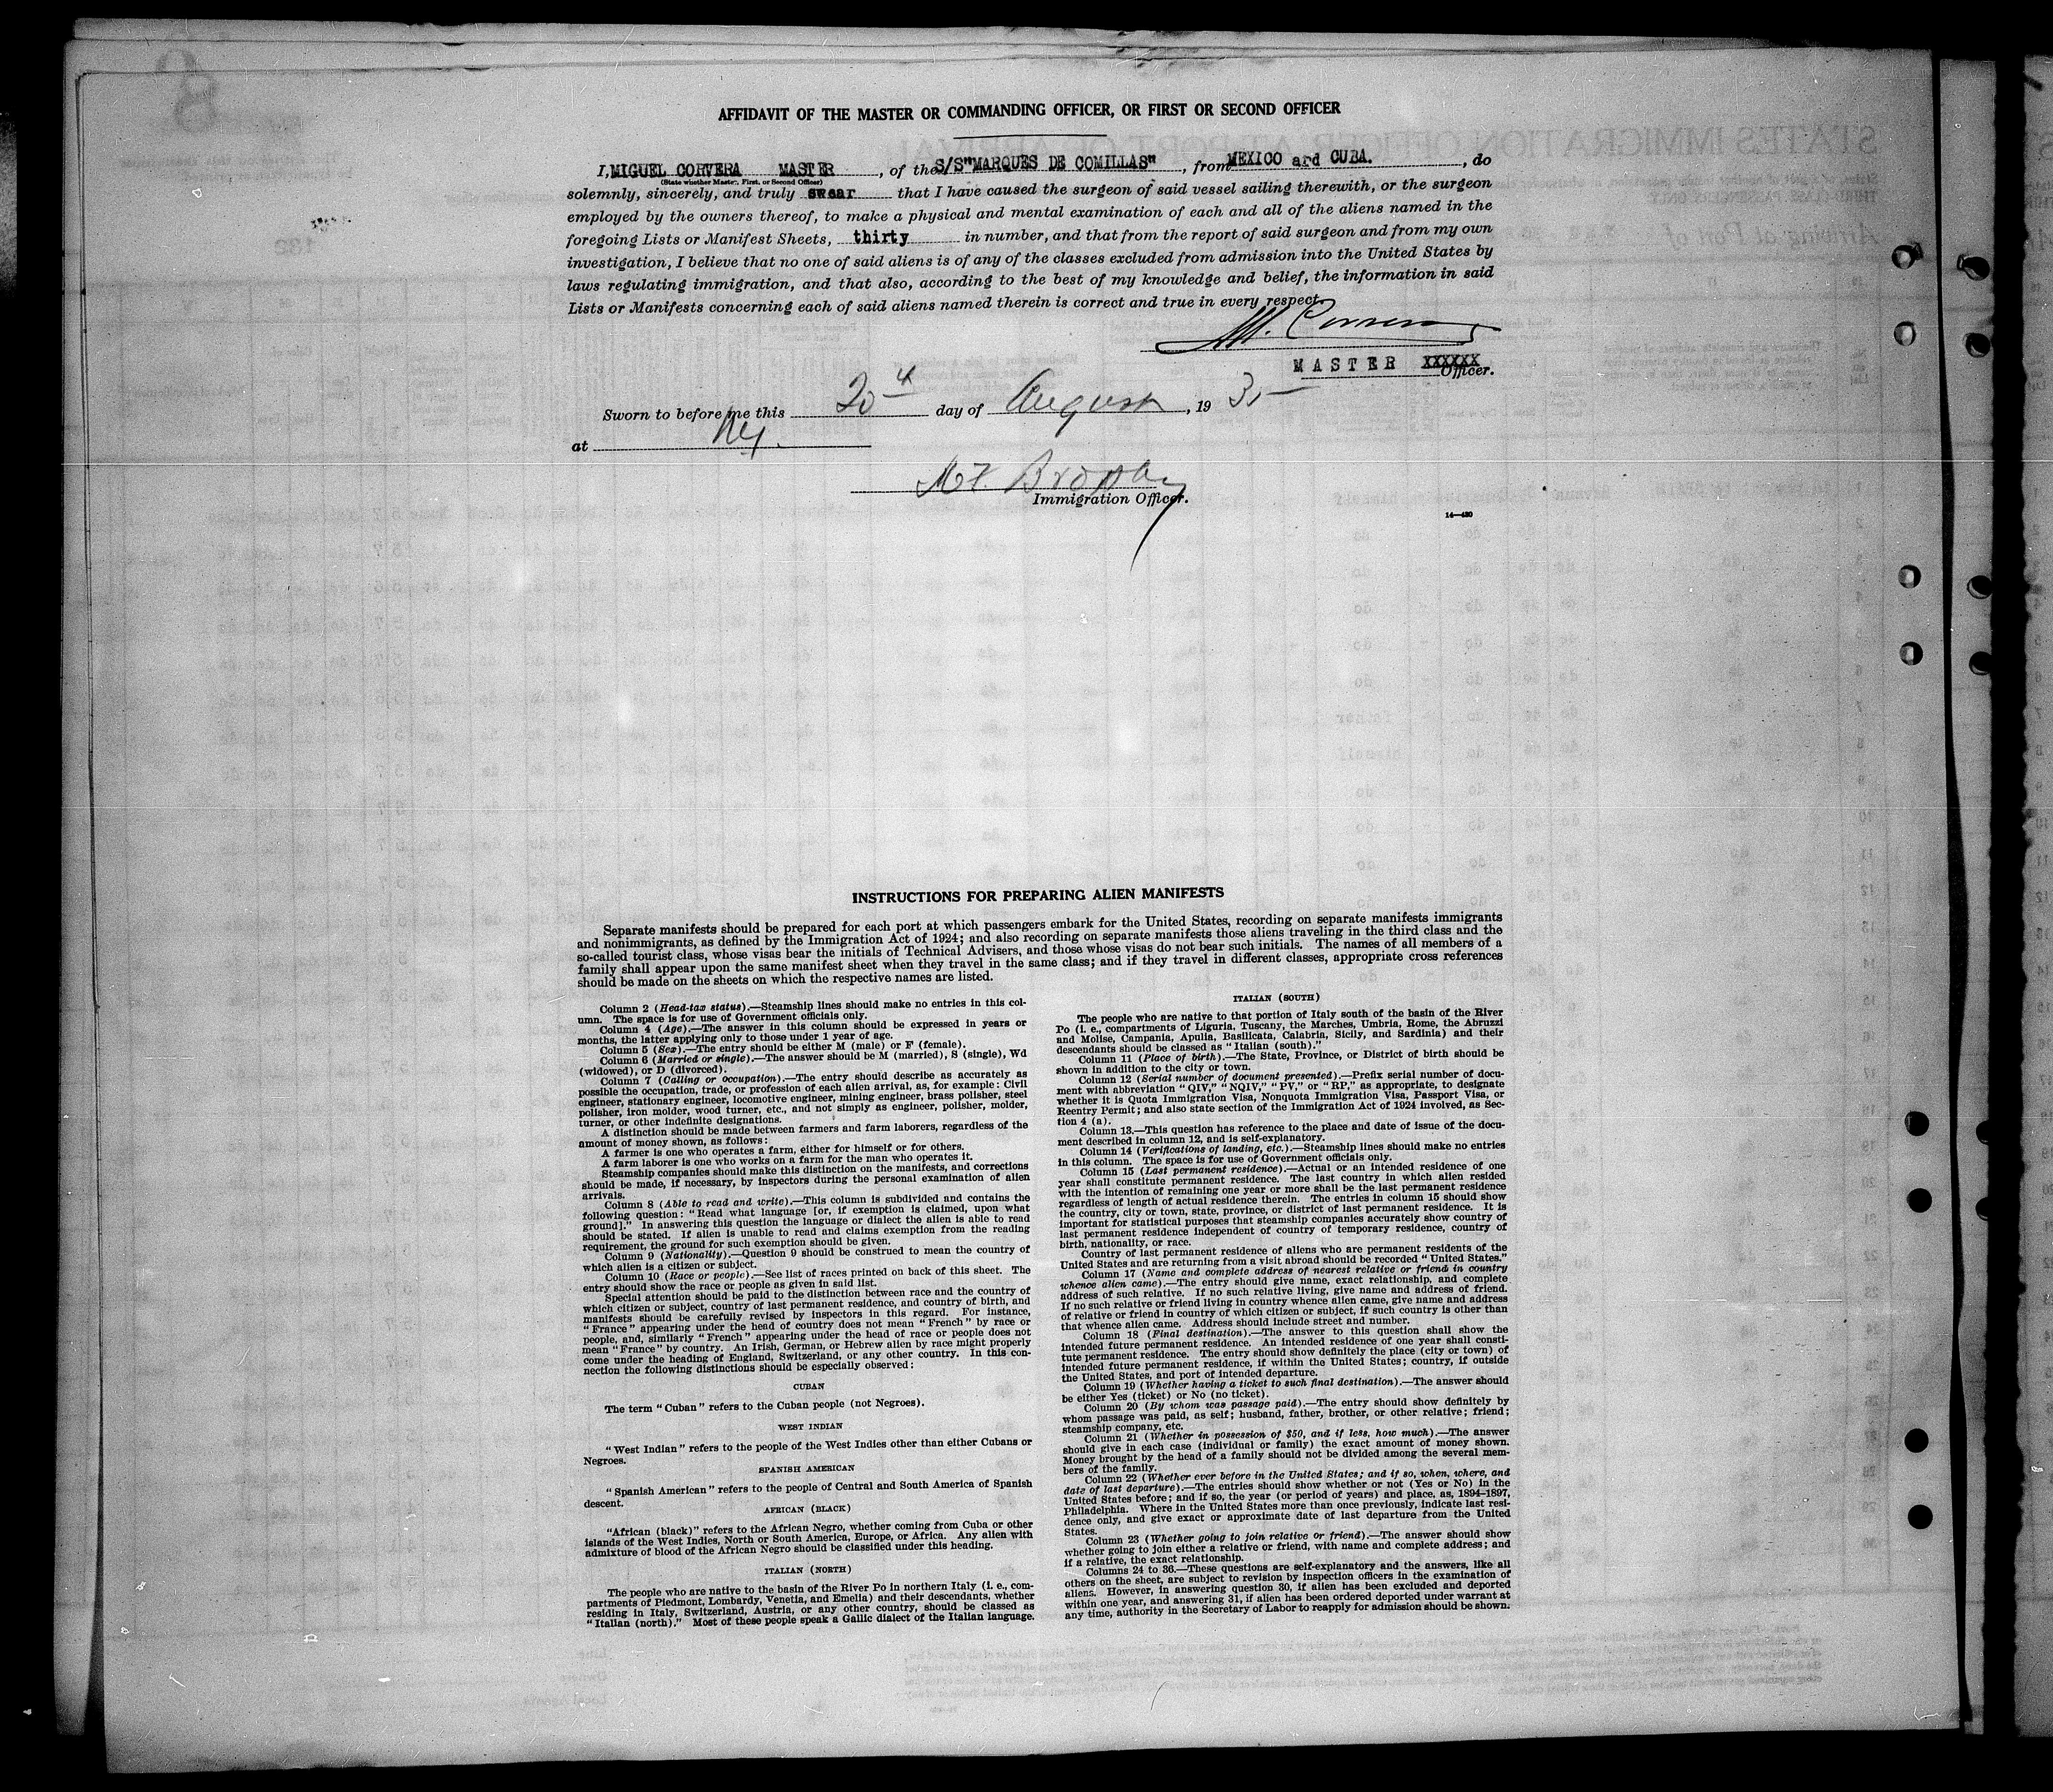 AFFIDAVIT OF THE MASTER OR COMMANDING OFFICER, OR FIRST OR SECOND OFFICER
I, MIGUEL CORVERA MASTER, of the S/S"MARQUES DE COMILLAS", from MEXICO and CUBA., do
(State whether Master, First, or Second Officer)
solemnly, sincerely, and truly swear that I have caused the surgeon of said vessel sailing therewith, or the surgeon
employed by the owners thereof, to make a physical and mental examination of each and all of the aliens named in the
foregoing Lists or Manifest Sheets, thirty in number, and that from the report of said surgeon and from my own
investigation, I believe that no one of said aliens is of any of the classes excluded from admission into the United States by
laws regulating immigration, and that also, according to the best of my knowledge and belief, the information in said
Lists or Manifests concerning each of said aliens named therein is correct and true in every respect.
MASTER XXXXXX
Officer.
Sworn to before me this 20th day of August, 1935
at NY.
Immigration Officer.
14—420
INSTRUCTIONS FOR PREPARING ALIEN MANIFESTS
Separate manifests should be prepared for each port at which passengers embark for the United States, recording on separate manifests immigrants
and nonimmigrants, as defined by the Immigration Act of 1924; and also recording on separate manifests those aliens traveling in the third class and the
so-called tourist class, whose visas bear the initials of Technical Advisers, and those whose visas do not bear such initials. The names of all members of a
family shall appear upon the same manifest sheet when they travel in the same class; and if they travel in different classes, appropriate cross references
should be made on the sheets on which the respective names are listed.
Column 2 (Head-tax status).—Steamship lines should make no entries in this col-
umn. The space is for use of Government officials only.
Column 4 (Age).—The answer in this column should be expressed in years or
months, the latter applying only to those under 1 year of age.
Column 5 (Sex).—The entry should be either M (male) or F (female).
Column 6 (Married or single).—The answer should be M (married), S (single), Wd
(widowed), or D (divorced).
Column 7 (Calling or occupation).—The entry should describe as accurately as
possible the occupation, trade, or profession of each alien arrival, as, for example: Civil
engineer, stationary engineer, locomotive engineer, mining engineer, brass polisher, steel
polisher, iron molder, wood turner, etc., and not simply as engineer, polisher, molder,
turner, or other indefinite designations.
A distinction should be made between farmers and farm laborers, regardless of the
amount of money shown, as follows:
A farmer is one who operates a farm, either for himself or for others.
A farm laborer is one who works on a farm for the man who operates it.
Steamship companies should make this distinction on the manifests, and corrections
should be made, if necessary, by inspectors during the personal examination of alien
arrivals.
Column 8 (Able to read and write).—This column is subdivided and contains the
following question: "Read what language [or, if exemption is claimed, upon what
ground]." In answering this question the language or dialect the alien is able to read
should be stated. If alien is unable to read and claims exemption from the reading
requirement, the ground for such exemption should be given.
Column 9 (Nationality).—Question 9 should be construed to mean the country of
which alien is a citizen or subject.
Column 10 (Race or people).—See list of races printed on back of this sheet. The
entry should show the race or people as given in said list.
Special attention should be paid to the distinction between race and the country of
which citizen or subject, country of last permanent residence, and country of birth, and
manifests should be carefully revised by inspectors in this regard. For instance,
"France" appearing under the head of country does not mean "French" by race or
people, and, similarly "French" appearing under the head of race or people does not
mean "France" by country. An Irish, German, or Hebrew alien by race might properly
come under the heading of England, Switzerland, or any other country. In this con-
nection the following distinctions should be especially observed:
CUBAN
The term "Cuban" refers to the Cuban people (not Negroes).
WEST INDIAN
"West Indian" refers to the people of the West Indies other than either Cubans or
Negroes.
SPANISH AMERICAN
"Spanish American" refers to the people of Central and South America of Spanish
descent.
AFRICAN (BLACK)
"African (black)" refers to the African Negro, whether coming from Cuba or other
islands of the West Indies, North or South America, Europe, or Africa. Any alien with
admixture of blood of the African Negro should be classified under this heading.
ITALIAN (NORTH)
The people who are native to the basin of the River Po in northern Italy (i. e., com-
partments of Piedmont, Lombardy, Venetia, and Emelia) and their descendants, whether
residing in Italy, Switzerland, Austria, or any other country, should be classed as
"Italian (north)." Most of these people speak a Gallic dialect of the Italian language.
ITALIAN (SOUTH)
The people who are native to that portion of Italy south of the basin of the River
Po (i. e., compartments of Liguria, Tuscany, the Marches, Umbria, Rome, the Abruzzi
and Molise, Campania, Apulia, Basilicata, Calabria, Sicily, and Sardinia) and their
descendants should be classed as "Italian (south)."
Column 11 (Place of birth).—The State, Province, or District of birth should be
shown in addition to the city or town.
Column 12 (Serial number of document presented).—Prefix serial number of docu-
ment with abbreviation "QIV," "NQIV," "PV," or "RP," as appropriate, to designate
whether it is Quota Immigration Visa, Nonquota Immigration Visa, Passport Visa, or
Reentry Permit; and also state section of the Immigration Act of 1924 involved, as Sec-
tion 4 (a).
Column 13.—This question has reference to the place and date of issue of the docu-
ment described in column 12, and is self-explanatory.
Column 14 (Verifications of landing, etc.).—Steamship lines should make no entries
in this column. The space is for use of Government officials only.
Column 15 (Last permanent residence).—Actual or an intended residence of one
year shall constitute permanent residence. The last country in which alien resided
with the intention of remaining one year or more shall be the last permanent residence
regardless of length of actual residence therein. The entries in column 15 should show
the country, city or town, state, province, or district of last permanent residence. It is
important for statistical purposes that steamship companies accurately show country of
last permanent residence independent of country of temporary residence, country of
birth, nationality, or race.
Country of last permanent residence of aliens who are permanent residents of the
United States and are returning from a visit abroad should be recorded "United States."
Column 17 (Name and complete address of nearest relative or friend in country
whence alien came).—The entry should give name, exact relationship, and complete
address of such relative. If no such relative living, give name and address of friend.
If no such relative or friend living in country whence alien came, give name and address
of relative or friend in country of which citizen or subject, if such country is other than
that whence alien came. Address should include street and number.
Column 18 (Final destination).—The answer to this question shall show the
intended future permanent residence. An intended residence of one year shall consti-
tute permanent residence. The entry should show definitely the place (city or town) of
intended future permanent residence, if within the United States; country, if outside
the United States, and port of intended departure.
Column 19 (Whether having a ticket to such final destination).—The answer should
be either Yes (ticket) or No (no ticket).
Column 20 (By whom was passage paid).—The entry should show definitely by
whom passage was paid, as self; husband, father, brother, or other relative; friend;
steamship company, etc.
Column 21 (Whether in possession of $50, and if less, how much).—The answer
should give in each case (individual or family) the exact amount of money shown.
Money brought by the head of a family should not be divided among the several mem-
bers of the family.
Column 22 (Whether ever before in the United States; and if so, when, where, and
date of last departure).—The entries should show whether or not (Yes or No) in the
United States before; and if so, the year (or period of years) and place, as, 1894–1897,
Philadelphia. Where in the United States more than once previously, indicate last resi-
dence only, and give exact or approximate date of last departure from the United
States.
Column 23 (Whether going to join relative or friend).—The answer should show
whether going to join either a relative or friend, with name and complete address; and
if a relative, the exact relationship.
Columns 24 to 36.—These questions are self-explanatory and the answers, like all
others on the sheet, are subject to revision by inspection officers in the examination of
aliens. However, in answering question 30, if alien has been excluded and deported
within one year, and answering 31, if alien has been ordered deported under warrant at
any time, authority in the Secretary of Labor to reapply for admission should be shown.